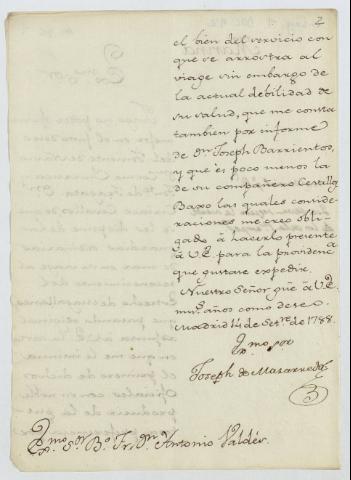 2
el bien del servicio con
que se arrostra al
viage sin embargo de
la actual debilidad de
su salud, que me consta
tambien por informe
de Dn. Joseph Barrientos,
y que és poco menos la
de su compañero Cevallos
Baxo las quales conside-
raciones me creo obli-
gado à hacerlo presente
à V.E. para la providenca
que gustare expedir.
Nuestro Señor gue à V.E.
ms. años como deseo.
Madrid 14 de Setre. de 1788.
Exmo. Sor
Joseph de Mazarredo
Exmo. Sr. Bo. Fr. Dn. Antonio Valdés.